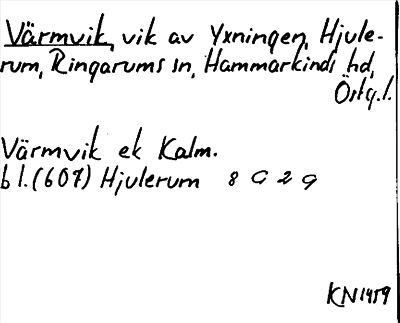 Värmvik, vik av Yxningen, Hjule-
rum, Ringarums sn, Hammarkinds hd,
Östg.l.
Värmvik ek Kalm.
bl. (607) Hjulerum 8 G 2 g
KN 1959